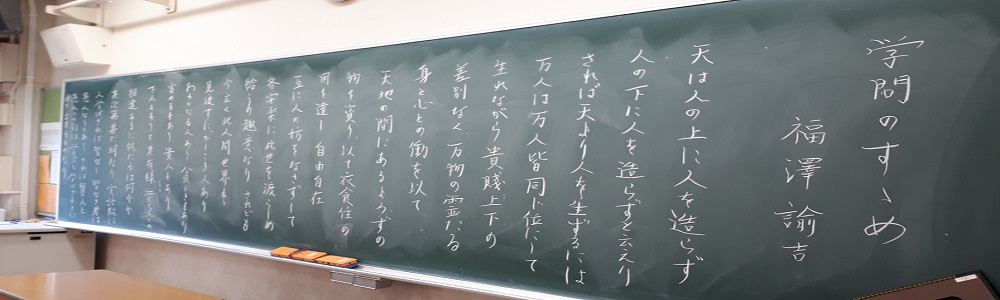 学問のすゝめ
福澤諭吉
天は人の上に人を造らず
人の下に人を造らずと云えり
されば天より人を生ずるには
万人は万人皆同じ位にして
生れながら貴賤上下の
差別なく万物の霊たる
身と心との働を以て
天地の間にあるよろずの
物を資り以て衣食住の
用を達し自由自在
互に人の妨をなさずして
各安楽に此世を渡らしめ
給うの趣意なりされども
今広く此人間世界を
見渡すにかしこき人あり
おろかなる人あり貧しきもあり
富めるもあり貴人もあり
下人もありて其有様雲と泥との
相違あるに似たるは何ぞや
其次第甚だ明なり